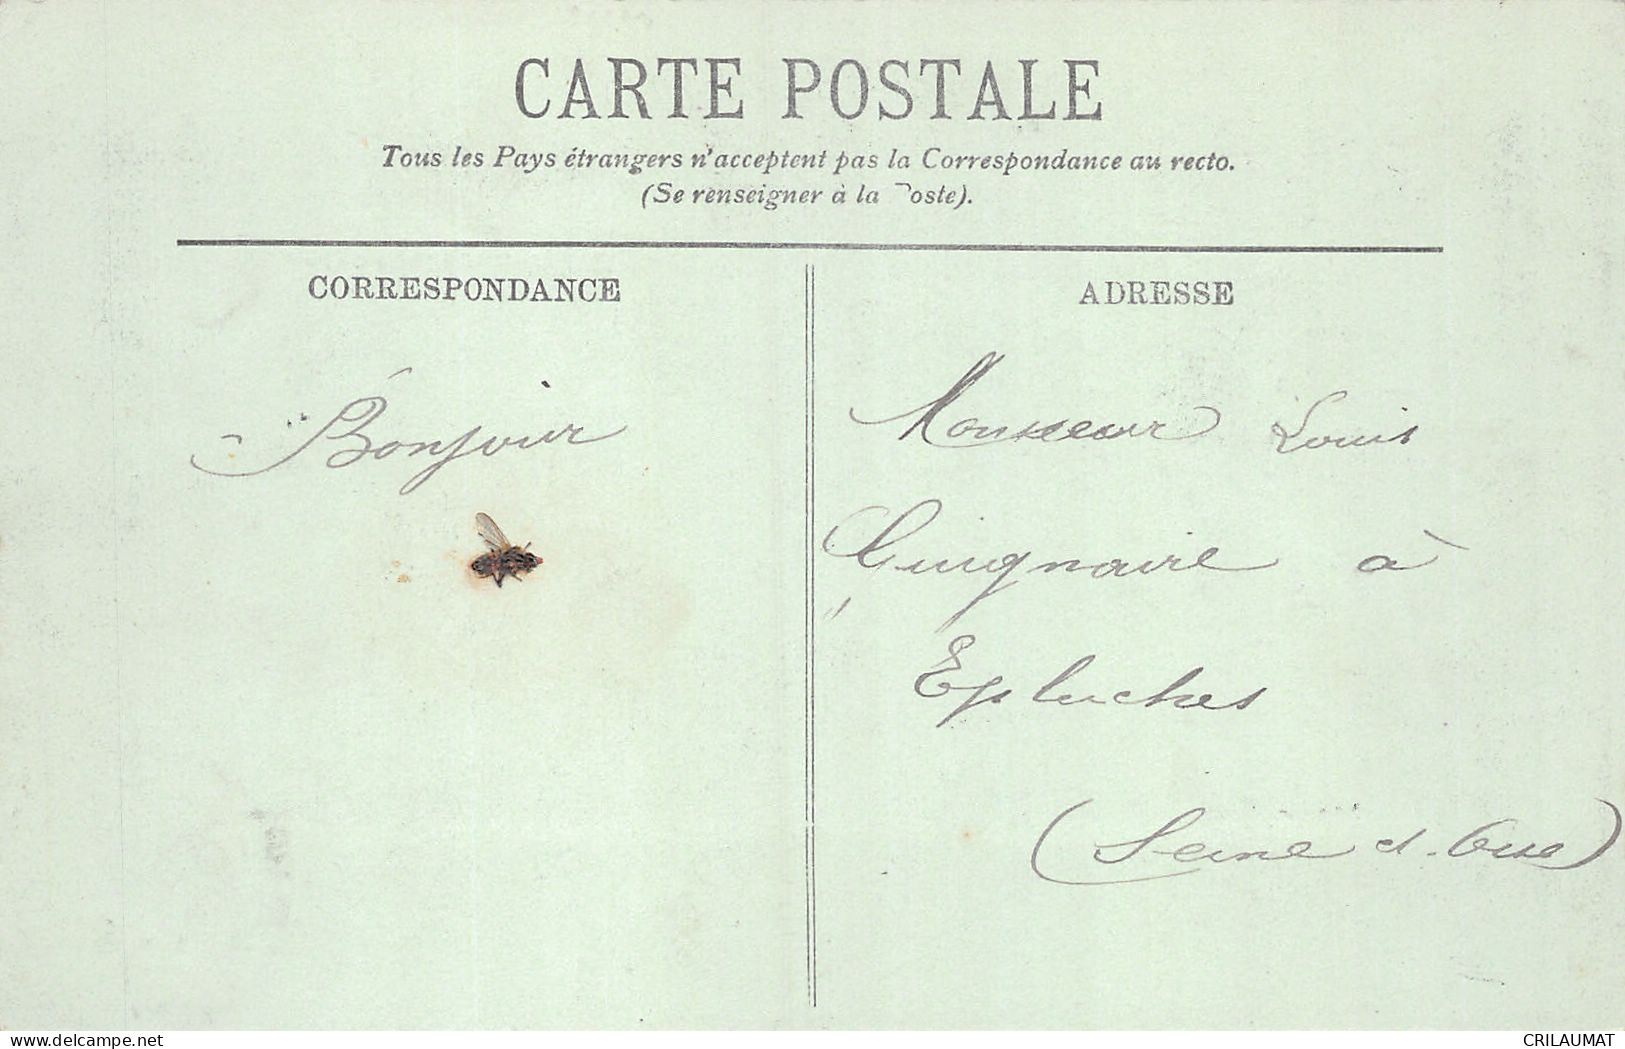 CARTE POSTALE
Tous les Pays étrangers n'acceptent pas la Correspondance au recto.
(Se renseigner à la Poste).
CORRESPONDANCE
ADRESSE
Bonjour
Monsieur Louis
Guignaire à
Epluches
(Seine et Oise)
delcampe.net
CRILAUMAT